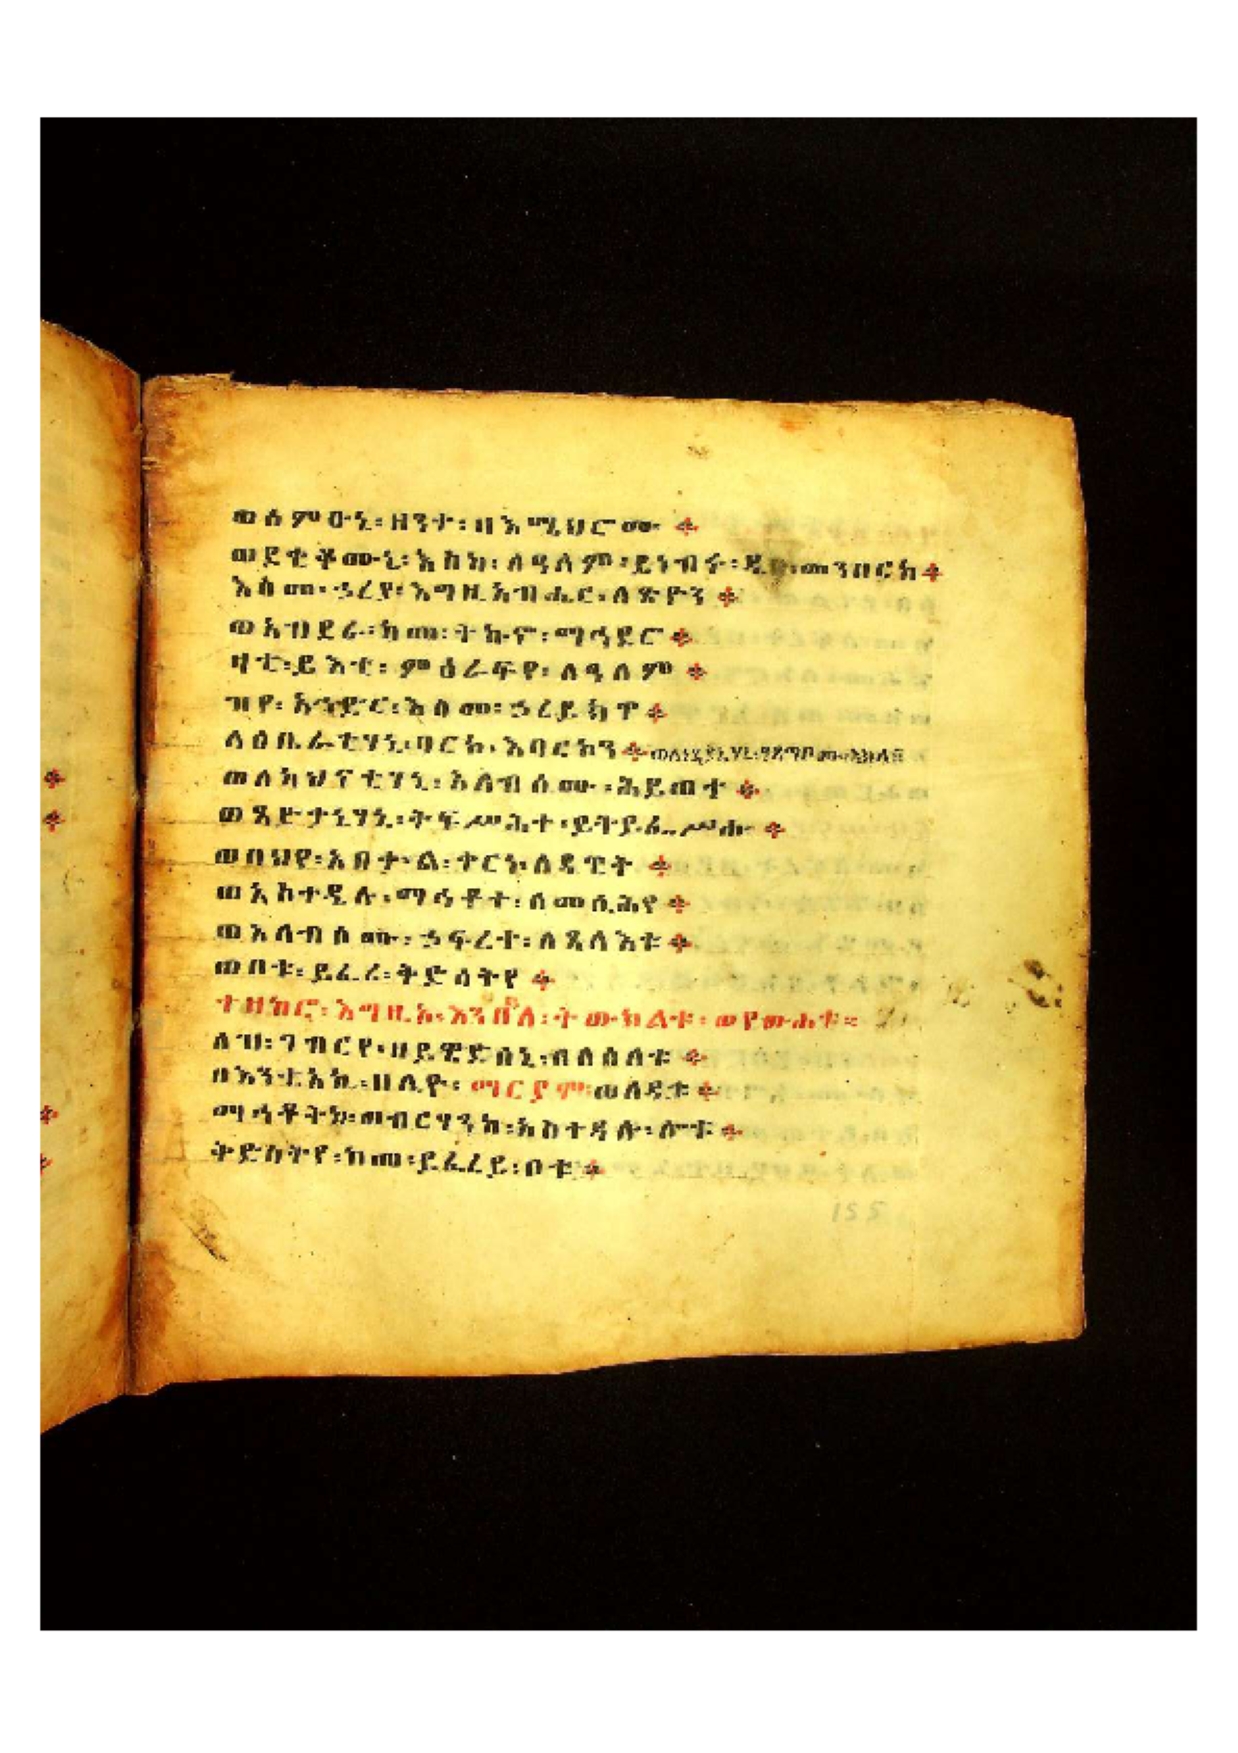 ወስምዑኒ፡ዘንተ፡ዘእሜህሮሙ ፨
ወደቂቆሙኒ፡እስከ፡ለዓለም፡ይነብሩ፡ዲበ፡መንበርከ፨
እስመ፡ኃረያ፡እግዚአብሔር፡ለጽዮን ፨
ወአብደራ፡ከመ፡ትኩኖ፡ማኅደሮ ፨
ዛቲ፡ይእቲ፡ምዕራፍየ፡ለዓለም ፨
ዝየ፡አኀድር፡እስመ፡ኃረይክዋ ፨
ለዕቤራቲሃኒ፡ባርኮ፡እባርኮን ፨ ወለነዳያኒሃኒ፡ኣጸግቦሙ፡እክለ፨
ወለካህናቲሃኒ፡አለብሶሙ፡ሕይወተ ፨
ወጻድታኒሃኒ፡ትፍሥሕተ፡ይትፌሥሑ ፨
ወበህየ፡አበቍል፡ቀርነ፡ለዳዊት ፨
ወአስተዴሉ፡ማኅቶተ፡ለመሲሕየ ፨
ወአለብሶሙ፡ኃፍረተ፡ለጸላእቱ ፨
ወቦቱ፡ይፈሪ፡ቅድሳትየ ፨
ተዘከሮ፡እግዚአ፡እንበለ፡ትውክልቱ፡ወየውሐቱ፡
ለዝ፡ገብርየ፡ዘይዌድሰኒ፡ብለሰለቱ ፨
በእንቲአኪ፡ዘሊዮ፡ማርያም፡ወለዳቱ ፨
ማኅቶትከ፡ወብርሃንከ፡አስተዳሉ፡ሎቱ ፨
ቅድሳትየ፡ከመ፡ይፈሪይ፡ቦቱ ፨
155